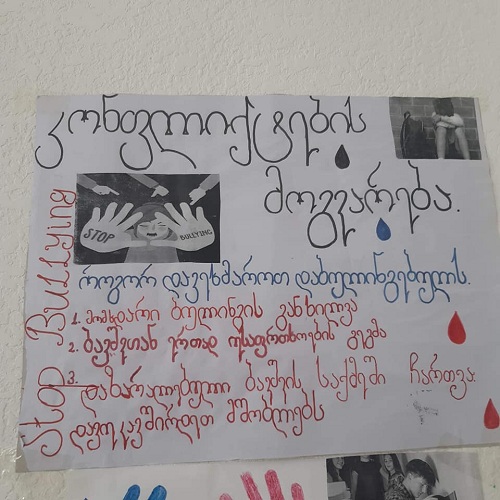 კონფლიქტების
მოგვარება.
STOP BULLYING
Stop Bullying
როგორ დავეხმაროთ დაბულინგებულს.
1. მომხდარი ბულინგის განხილვა
2. ბავშვთან ერთად უსაფრთხოების გეგმა
3. დაზარალებული ბავშვის საქმეში ჩართვა.
დაუკავშირდეთ მშობლებს